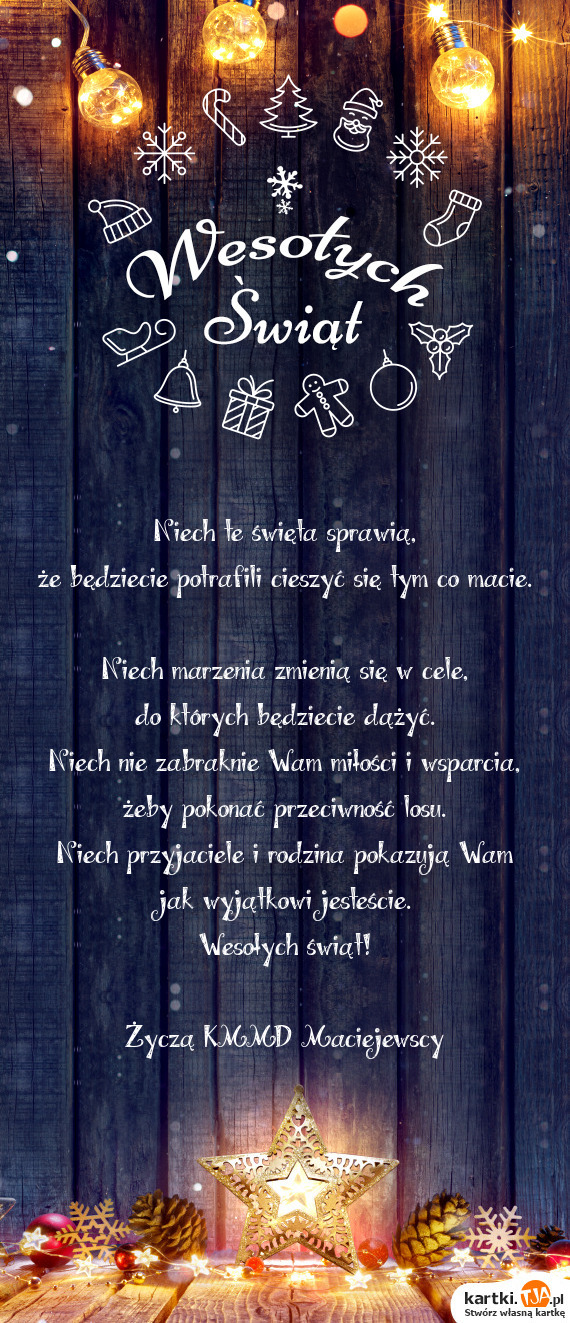 Wesołych
Świąt
Niech te święta sprawią,
że będziecie potrafili cieszyć się tym co macie.
Niech marzenia zmienią się w cele,
do których będziecie dążyć.
Niech nie zabraknie Wam miłości i wsparcia,
żeby pokonać przeciwność losu.
Niech przyjaciele i rodzina pokazują Wam
jak wyjątkowi jesteście.
Wesołych świąt!
Życzą KMMD Maciejewscy
kartki.TJA.pl
Stwórz własną kartkę